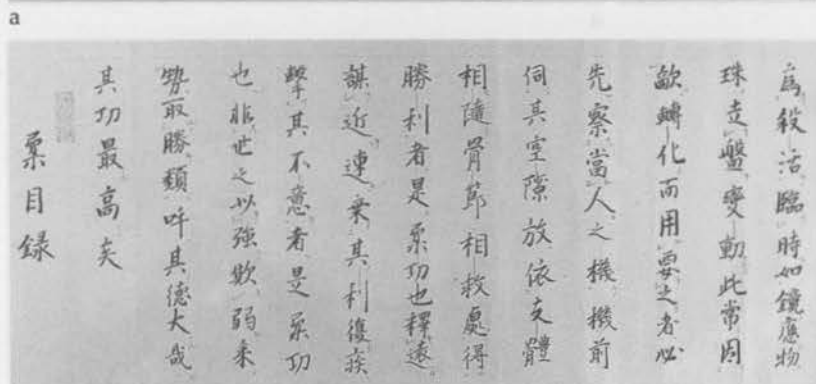 a
為殺活臨時如鏡應物
珠走盤變動此常因
敵轉化而用要之者必
先察當人之機機前
伺其空隙放依支體
相隨骨節相救處得
勝利者是柔功也釋遠
謀近速乗其利復疾
擊其不意者是柔功
也非世之以強欺弱柔
勢取勝類吁其德大哉
其功最高矣
柔目録